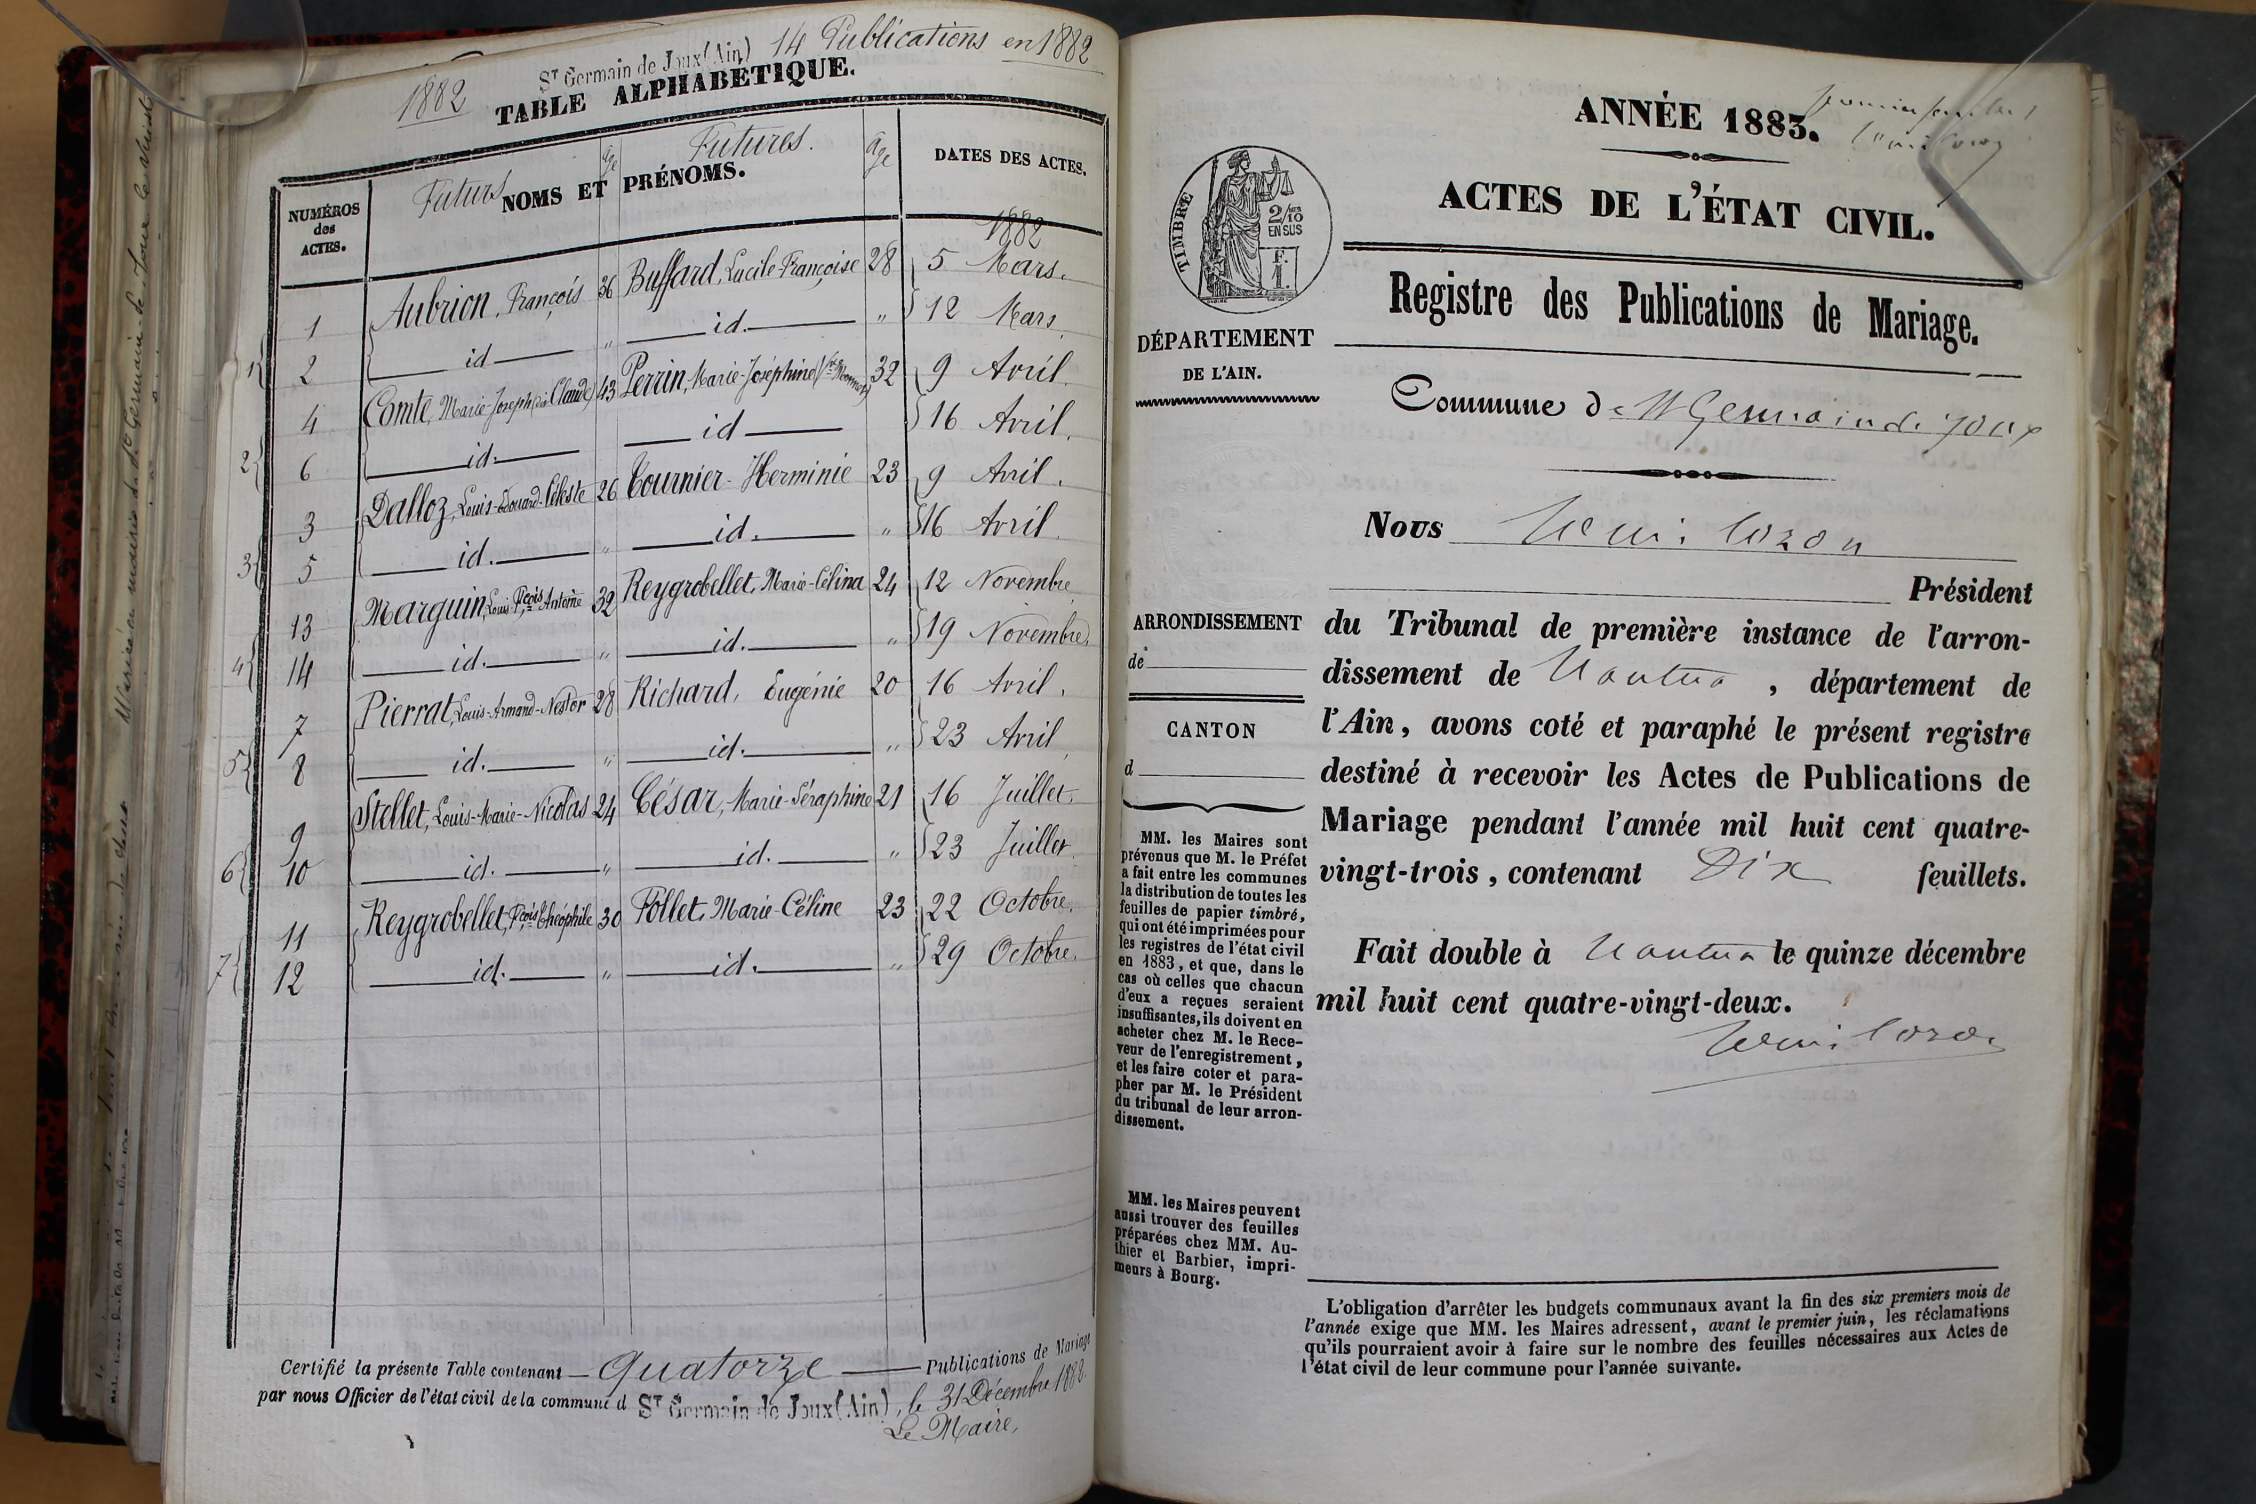 14 Publications en 1882
St Germain de Joux (Ain)
1882
TABLE ALPHABÉTIQUE.
NUMÉROS des ACTES.
Futurs
Futures.
NOMS ET PRÉNOMS.
age
age
DATES DES ACTES.
1882
1 Aubrion, François 36 Buffard, Lucile-Françoise 28 5 Mars.
1 2 id " id. " 12 Mars
4 Comte, Marie-Joseph (dit Claude) 43 Perrin, Marie-Joséphine 32 9 Avril.
2 6 id. id 16 Avril.
3 Dalloz, Louis-Edouard-Céleste 26 Tournier Herminie 23 9 Avril.
3 5 id. " id. " 16 Avril.
13 Marguin, Louis Fçois Antoine 32 Reygrobellet, Marie-Célina 24 12 Novembre
4 14 id. " id. " 19 Novembre.
7 Pierrat, Louis-Armand-Nestor 28 Richard, Eugénie 20 16 Avril.
5 8 id. " id. " 23 Avril
9 Stellet, Louis-Marie-Nicolas 24 César, Marie-Séraphine 21 16 Juillet.
6 10 id. " id. " 23 Juillet.
11 Reygrobellet, Fçois Théophile 30 Pollet, Marie-Céline 23 22 Octobre.
7 12 id. " id. " 29 Octobre.
Certifié la présente Table contenant Quatorze Publications de Mariage
par nous Officier de l'état civil de la commune d St Germain de Joux (Ain), le 31 Décembre 1882.
Le Maire,
ANNÉE 1883.
ACTES DE L'ÉTAT CIVIL.
TIMBRE
2/10
EN SUS
F.
1.
Registre des Publications de Mariage.
DÉPARTEMENT
DE L'AIN.
Commune de St Germain de Joux
Nous
Président
ARRONDISSEMENT
de
CANTON
d
du Tribunal de première instance de l'arron-
dissement de Nantua, département de
l'Ain, avons coté et paraphé le présent registre
destiné à recevoir les Actes de Publications de
Mariage pendant l'année mil huit cent quatre-
vingt-trois, contenant Dix feuillets.
Fait double à Nantua le quinze décembre
mil huit cent quatre-vingt-deux.
MM. les Maires sont
prévenus que M. le Préfet
a fait entre les communes
la distribution de toutes les
feuilles de papier timbré,
qui ont été imprimées pour
les registres de l'état civil
en 1883, et que, dans le
cas où celles que chacun
d'eux a reçues seraient
insuffisantes, ils doivent en
acheter chez M. le Rece-
veur de l'enregistrement,
et les faire coter et para-
pher par M. le Président
du tribunal de leur arron-
dissement.
MM. les Maires peuvent
aussi trouver des feuilles
préparées chez MM. Au-
thier et Barbier, impri-
meurs à Bourg.
L'obligation d'arrêter les budgets communaux avant la fin des six premiers mois de
l'année exige que MM. les Maires adressent, avant le premier juin, les réclamations
qu'ils pourraient avoir à faire sur le nombre des feuilles nécessaires aux Actes de
l'état civil de leur commune pour l'année suivante.